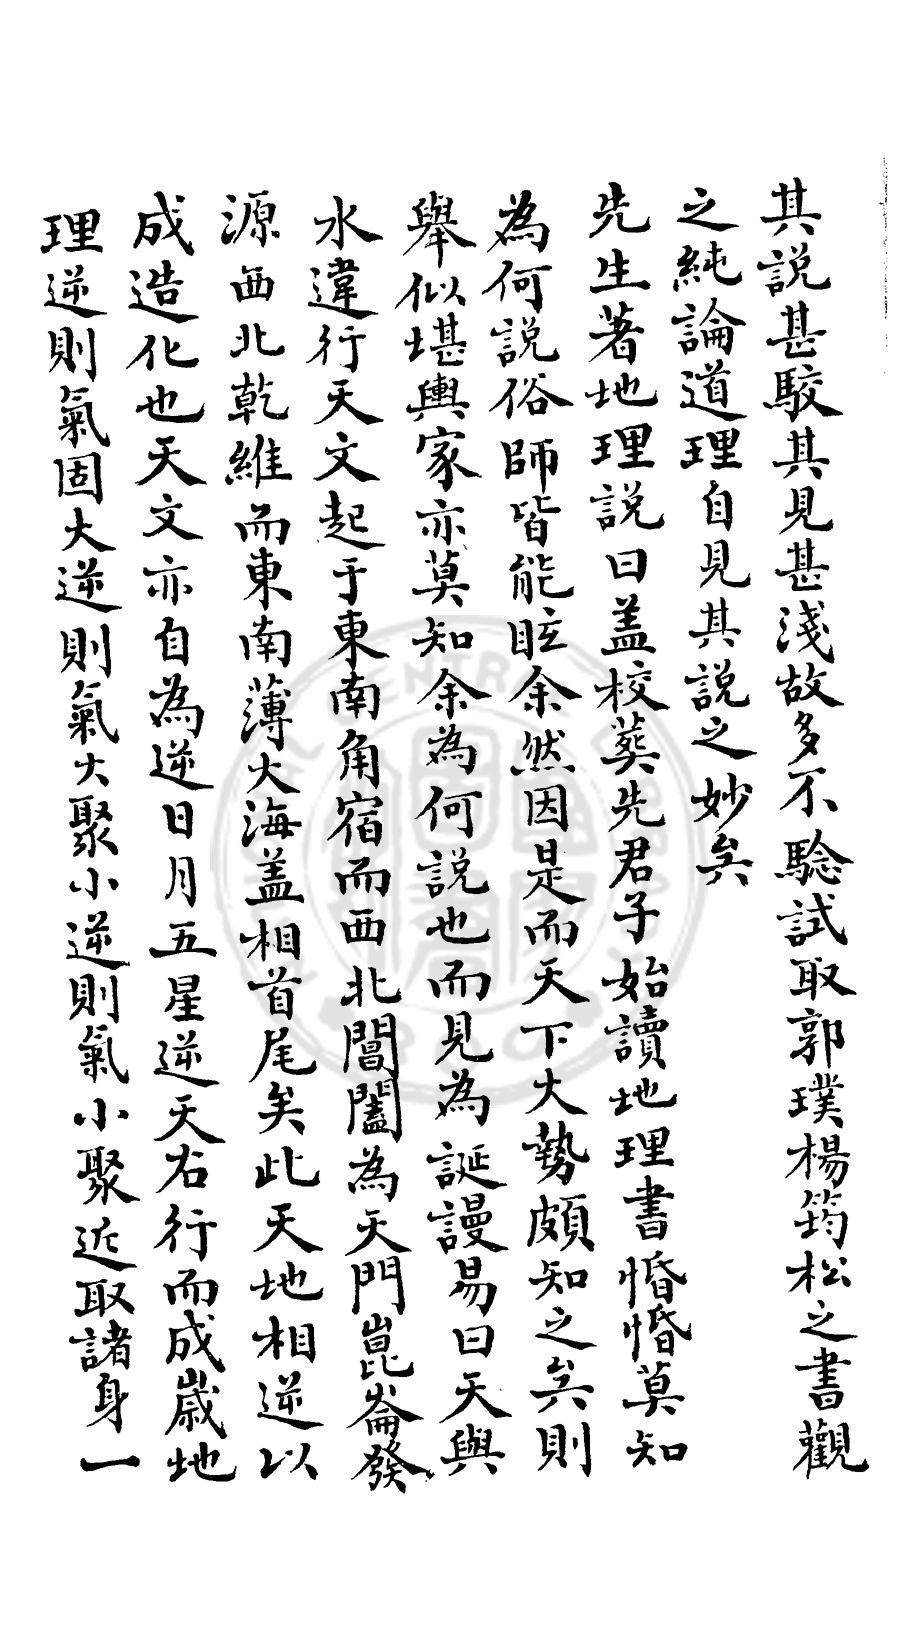 其説甚駮其見甚淺故多不騐試取郭璞楊筠松之書觀
之純論道理自見其説之妙矣
先生著地理説曰盖校葬先君子始讀地理書惛惛莫知
為何説俗師皆能眩余然因是而天下大勢頗知之矣則
舉似堪輿家亦莫知余為何説也而見為誕謾易曰天與
水違行天文起于東南角宿而西北閶闔為天門崑崙發
源西北乾維而東南薄大海盖相首尾矣此天地相逆以
成造化也天文亦自為逆日月五星逆天右行而成嵗地
理逆則氣固大逆則氣大聚小逆則氣小聚近取諸身一